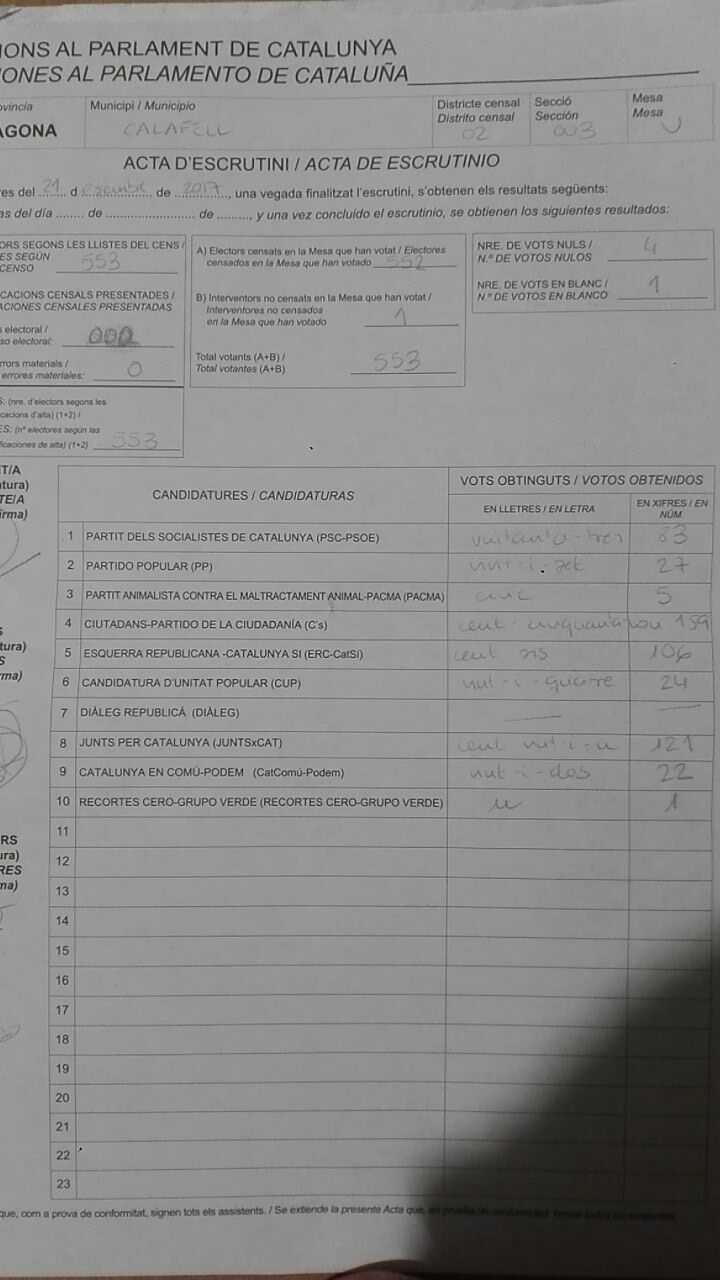 IONS AL PARLAMENT DE CATALUNYA
IONES AL PARLAMENTO DE CATALUÑA
ovincia Municipi / Municipio Districte censal Secció Mesa
Distrito censal Sección Mesa
AGONA CALAFELL 02 003 U
ACTA D'ESCRUTINI / ACTA DE ESCRUTINIO
res del 21 d desembre de 2017, una vegada finalitzat l'escrutini, s'obtenen els resultats següents:
as del día ........ de ........................ de ........., y una vez concluido el escrutinio, se obtienen los siguientes resultados:
ORS SEGONS LES LLISTES DEL CENS /
ES SEGÚN
CENSO 553
CACIONS CENSALS PRESENTADES /
ACIONES CENSALES PRESENTADAS
s electoral /
so electoral: 000
rrors materials /
errores materiales: 0
S: (nre. d'electors segons les
cacions d'alta) (1+2) /
ES: (nº electores según las
ficaciones de alta) (1+2) 553
A) Electors censats en la Mesa que han votat / Electores
censados en la Mesa que han votado 552
B) Interventors no censats en la Mesa que han votat /
Interventores no censados
en la Mesa que han votado 1
Total votants (A+B) /
Total votantes (A+B) 553
NRE. DE VOTS NULS /
N.º DE VOTOS NULOS 4
NRE. DE VOTS EN BLANC /
N.º DE VOTOS EN BLANCO 1
T/A
atura)
TE/A
irma)
CANDIDATURES / CANDIDATURAS VOTS OBTINGUTS / VOTOS OBTENIDOS
EN LLETRES / EN LETRA EN XIFRES / EN NÚM.
1 PARTIT DELS SOCIALISTES DE CATALUNYA (PSC-PSOE) vuitanta-tres 83
2 PARTIDO POPULAR (PP) vint-i-set 27
3 PARTIT ANIMALISTA CONTRA EL MALTRACTAMENT ANIMAL-PACMA (PACMA) cinc 5
4 CIUTADANS-PARTIDO DE LA CIUDADANÍA (C's) cent-cinquanta nou 159
5 ESQUERRA REPUBLICANA -CATALUNYA SI (ERC-CatSí) cent sis 106
6 CANDIDATURA D'UNITAT POPULAR (CUP) vint-i-quatre 24
7 DIÀLEG REPUBLICÀ (DIÀLEG)
8 JUNTS PER CATALUNYA (JUNTSxCAT) cent vint-i-u 121
9 CATALUNYA EN COMÚ-PODEM (CatComú-Podem) vint-i-dos 22
10 RECORTES CERO-GRUPO VERDE (RECORTES CERO-GRUPO VERDE) u 1
11
12
13
14
15
16
17
18
19
20
21
22
23
S
tura)
S
rma)
RS
ura)
RES
ma)
que, com a prova de conformitat, signen tots els assistents. / Se extiende la presente Acta que, en prueba de conformidad, firman todos los asistentes.